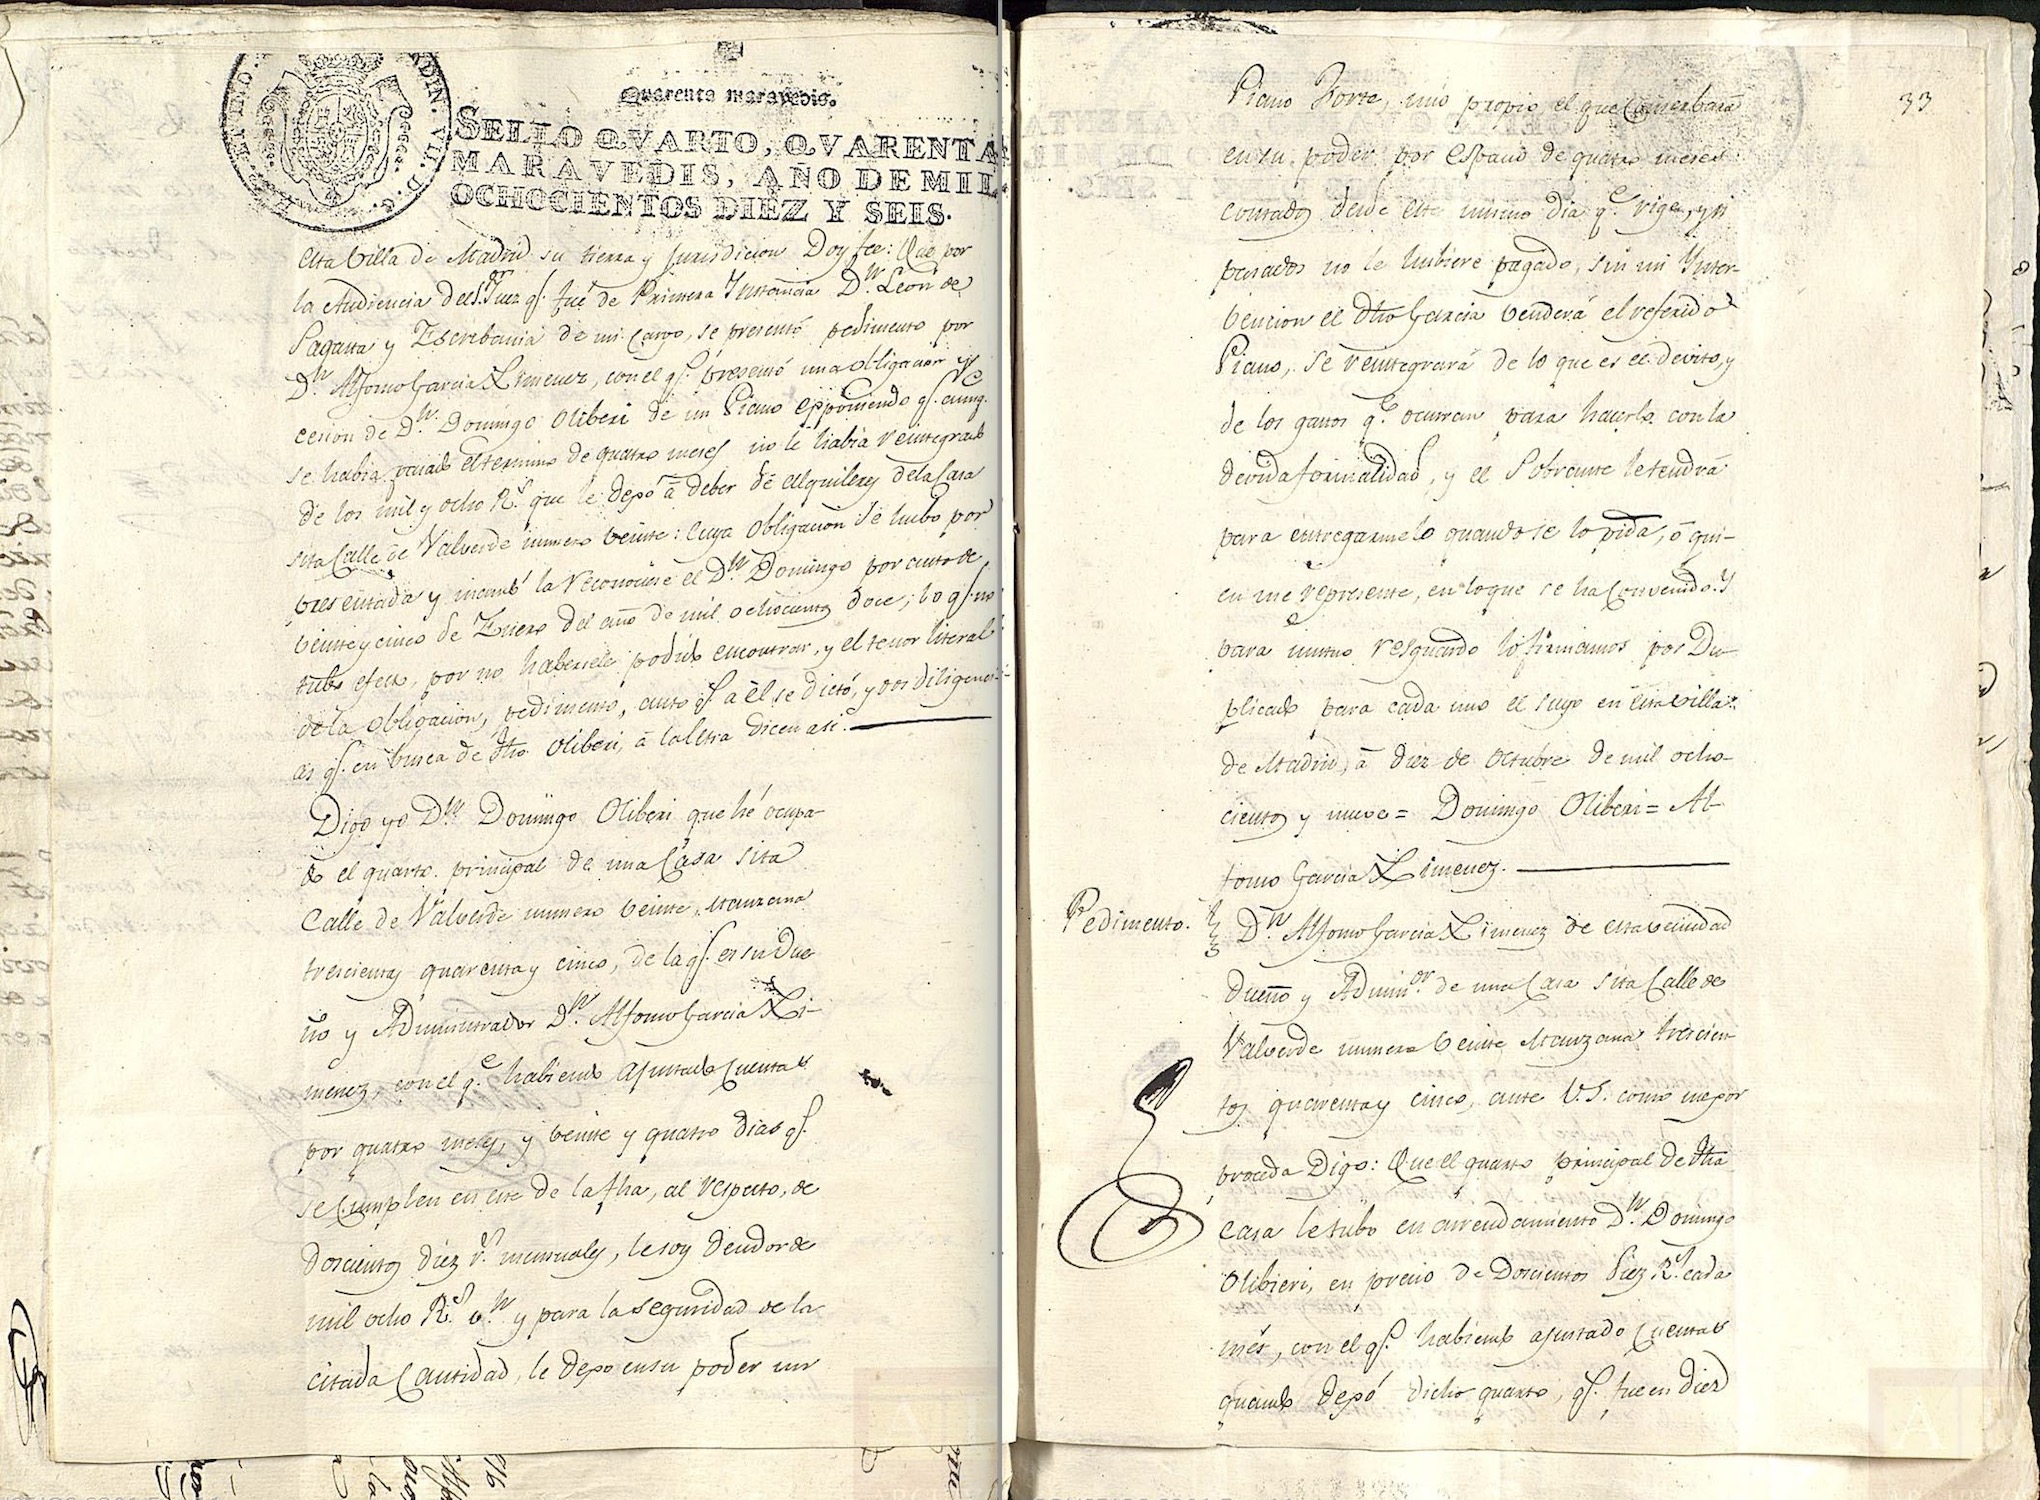 Quarenta maravedis.
SELLO QVARTO, QVARENTA
MARAVEDIS, AÑO DE MIL
OCHOCIENTOS DIEZ Y SEIS.
esta Villa de Madrid su tierra y Jurisdicion Doy fee: Que por
la Audiencia del S.ʳ Juez q.ᵉ fué de Primera Ynstancia D.ⁿ Leon de
Sagasta y Escribania de mi cargo, se presentó pedimento por
D.ⁿ Alfonso Garcia Ximenez, con el q.ᵉ presentó una obligacion y
cesion de D.ⁿ Domingo Oliberi de un Piano exponiendo q.ᵉ aunq.ᵉ
se habia pasado el termino de quatro meses no le habia reintegrado
de los mil y ocho R.ˢ que le dejó á deber de Alquileres de la Casa
sita Calle de Valverde numero veinte: cuya obligacion se hubo por
presentada y mandó la reconociese el D.ⁿ Domingo por auto de
veinte y cinco de Enero del año de mil ochocientos doce; lo q.ᵉ no
tubo efecto, por no habersele podido encontrar, y el tenor literal
de la obligacion, pedimento, auto q.ᵉ a él se dictó, y dos diligenci-
as q.ᵉ en busca de dho Oliberi, á la letra dicen asi.
Digo yo D.ⁿ Domingo Oliberi que hé ocupa-
do el quarto principal de una Casa sita
Calle de Valverde numero veinte, Manzana
trescientas quarenta y cinco, de la q.ᵉ es su Due-
ño y Administrador D.ⁿ Alfonso Garcia Xi-
menez, con el q.ᵉ habiendo ajustado Cuentas
por quatro meses, y veinte y quatro dias q.ᵉ
se cumplen en este de la fha, al respecto, de
doscientos diez r.ˢ mensuales, le soy deudor de
mil ocho R.ˢ v.ⁿ y para la seguridad de la
citada Cantidad, le dejo en su poder un
33
Piano Forte, mio propio el que conserbará
en su poder por espacio de quatro meses
contados desde este mismo dia q.ᵉ rige, y si
pasados no le hubiere pagado, sin mi Ynter-
vencion el dho Garcia venderá el referido
Piano, se reintegrará de lo que es el devito, y
de los gastos q.ᵉ ocurran para hacerlo con la
devida formalidad, y el Sobrante le tendrá
para entregarmelo quando se lo pida, ó qui-
en me represente, en lo que se ha convenido. Y
para mutuo resguardo lo firmamos por Du-
plicado para cada uno el suyo en esta villa
de Madrid, á diez de Octubre de mil ocho-
cientos y nueve = Domingo Oliberi = Al-
fonso Garcia Ximenez.
Pedimento. D.ⁿ Alfonso Garcia Ximenez de esta vecindad
dueño y Admin.ᵒʳ de una Casa sita Calle de
Valverde numero veinte Manzana trescien-
tos quarenta y cinco, ante V.S. como mejor
proceda Digo: Que el quarto principal de dha
casa le tubo en arrendamiento D.ⁿ Domingo
Olibieri, en precio de Doscientos Diez R.ˢ cada
més, con el q.ᵉ habiendo ajustado cuentas
quando dejó dicho quarto, q.ᵉ fue en diez